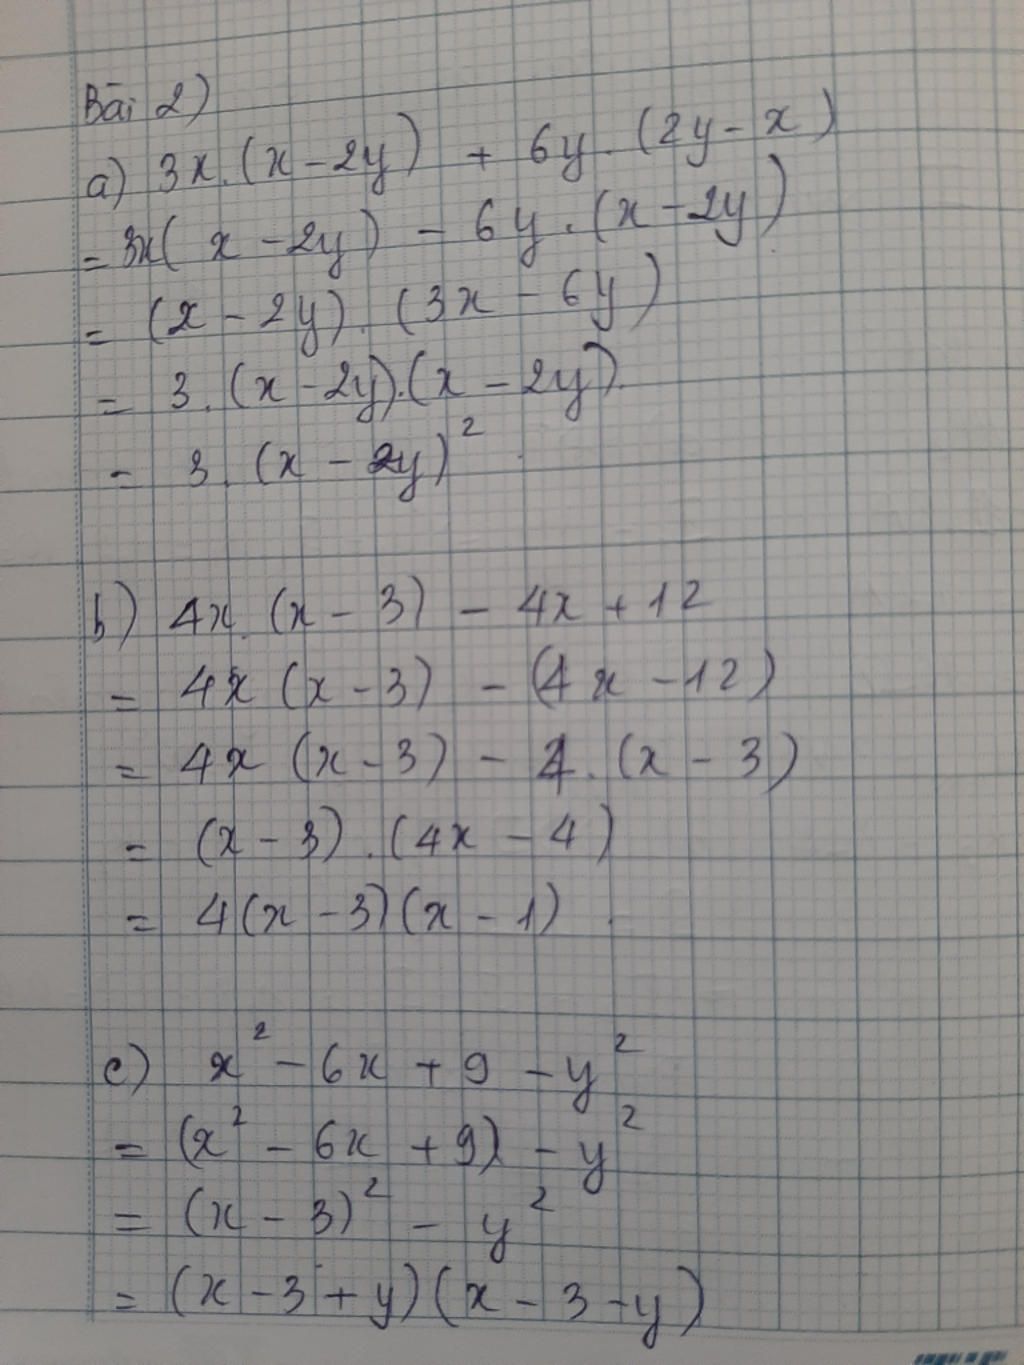 Bài 2)
a) 3x.(x-2y) + 6y.(2y-x)
= 3x(x-2y) - 6y.(x-2y)
= (x-2y).(3x-6y)
= 3.(x-2y).(x-2y).
= 3.(x-2y)²
b) 4x.(x-3) - 4x+12
= 4x(x-3) - (4x-12)
= 4x(x-3) - 4.(x-3)
= (x-3).(4x-4)
= 4(x-3)(x-1).
c) x²-6x+9-y²
= (x²-6x+9)-y²
= (x-3)²-y²
= (x-3+y)(x-3-y)